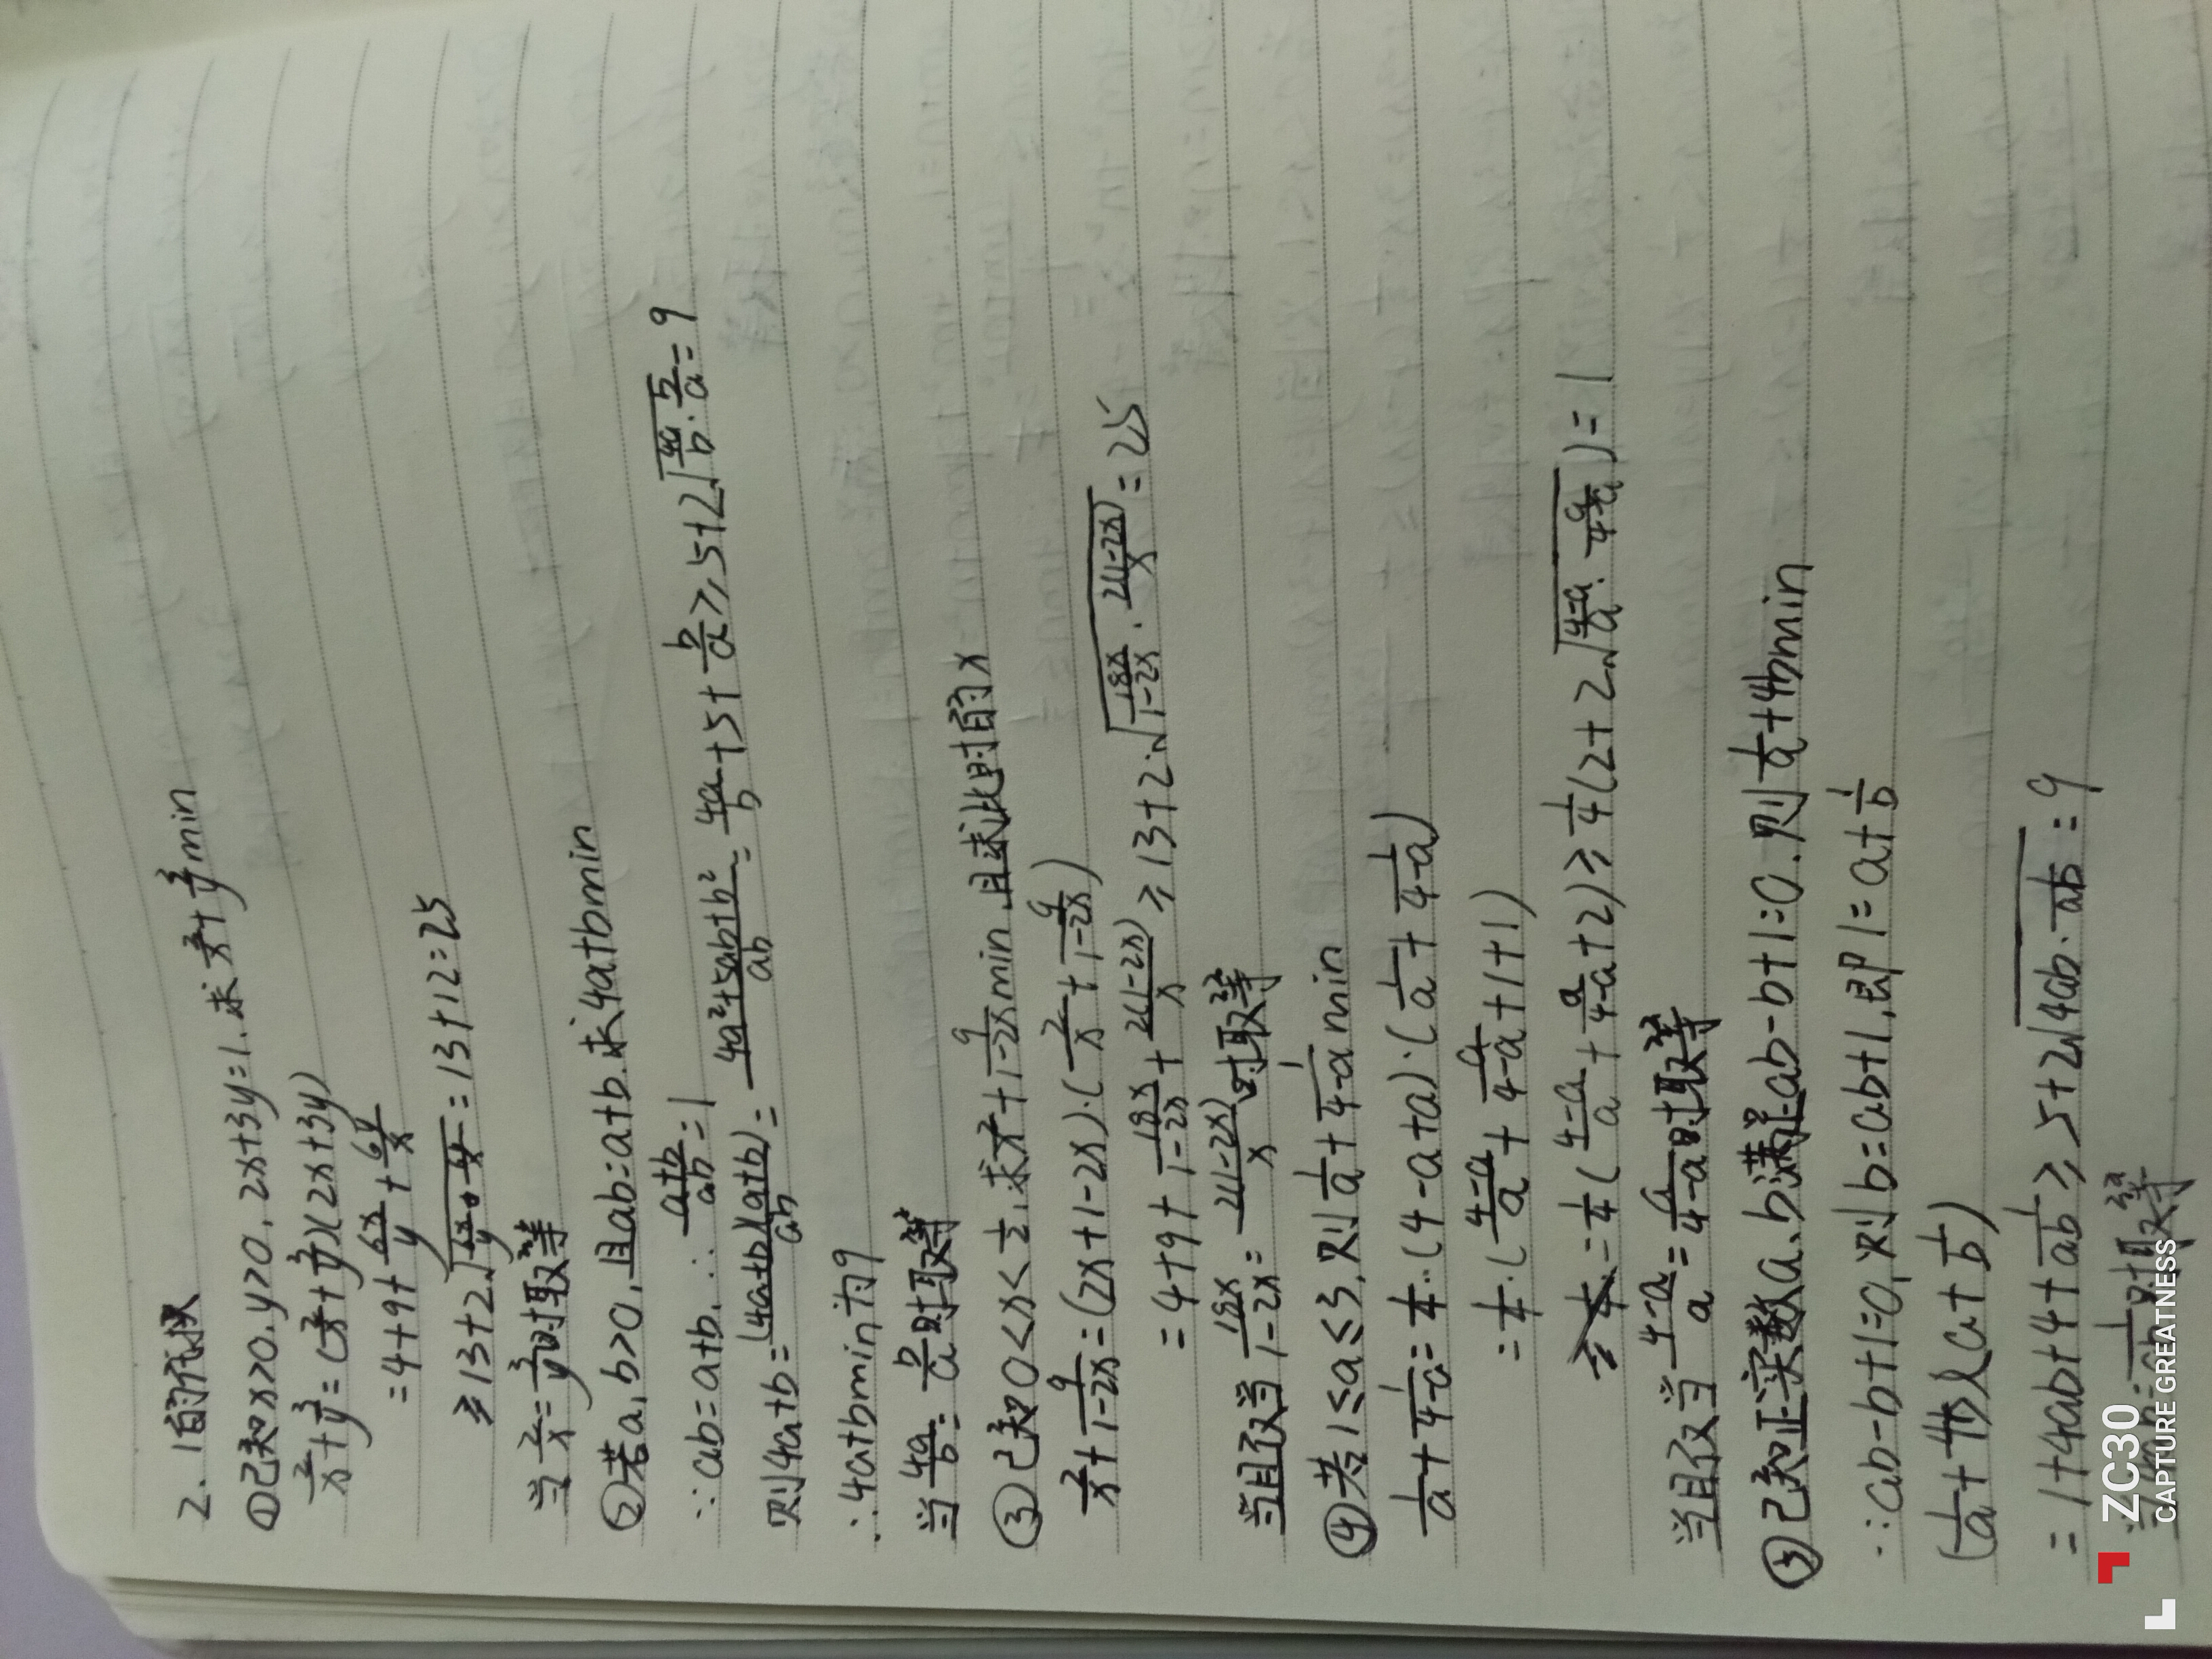 2. 1的代换
①已知x>0,y>0,2x+3y=1.求2/x+3/y min
2/x+3/y=(2/x+3/y)(2x+3y)
=4+9+6x/y+6y/x
≥13+2√(6x/y·6y/x)=13+12=25
当2/x=3/y时取等
②若a,b>0,且ab=a+b.求4a+b min
∵ab=a+b,∴(a+b)/ab=1
则4a+b=(4a+b)(a+b)/ab=(4a²+5ab+b²)/ab=4a/b+5+b/a≥5+2√(4a/b·b/a)=9
∴4a+b min为9
当4a/b=b/a时取等
③已知0<x<1/2,求2/x+9/(1-2x) min,且求此时的x
2/x+9/(1-2x)=(2x+1-2x)·(2/x+9/(1-2x))
=4+9+18x/(1-2x)+2(1-2x)/x≥13+2·√(18x/(1-2x)·2(1-2x)/x)=25
当且仅当18x/(1-2x)=2(1-2x)/x时取等
④若1≤a≤3,则1/a+1/(4-a) min
1/a+1/(4-a)=1/4·(4-a+a)·(1/a+1/(4-a))
=1/4·((4-a)/a+a/(4-a)+1+1)
=1/4((4-a)/a+a/(4-a)+2)≥1/4(2+2√((4-a)/a·a/(4-a)))=1
当且仅当(4-a)/a=a/(4-a)时取等
⑤已知正实数a、b满足ab-b+1=0.则1/a+4b min
∵ab-b+1=0,则b=ab+1,即1=a+1/b
(1/a+4b)(a+1/b)
=1+4ab+4+1/ab≥5+2√(4ab·1/ab)=9
当4ab=1/ab时取等
ZC30
CAPTURE GREATNESS